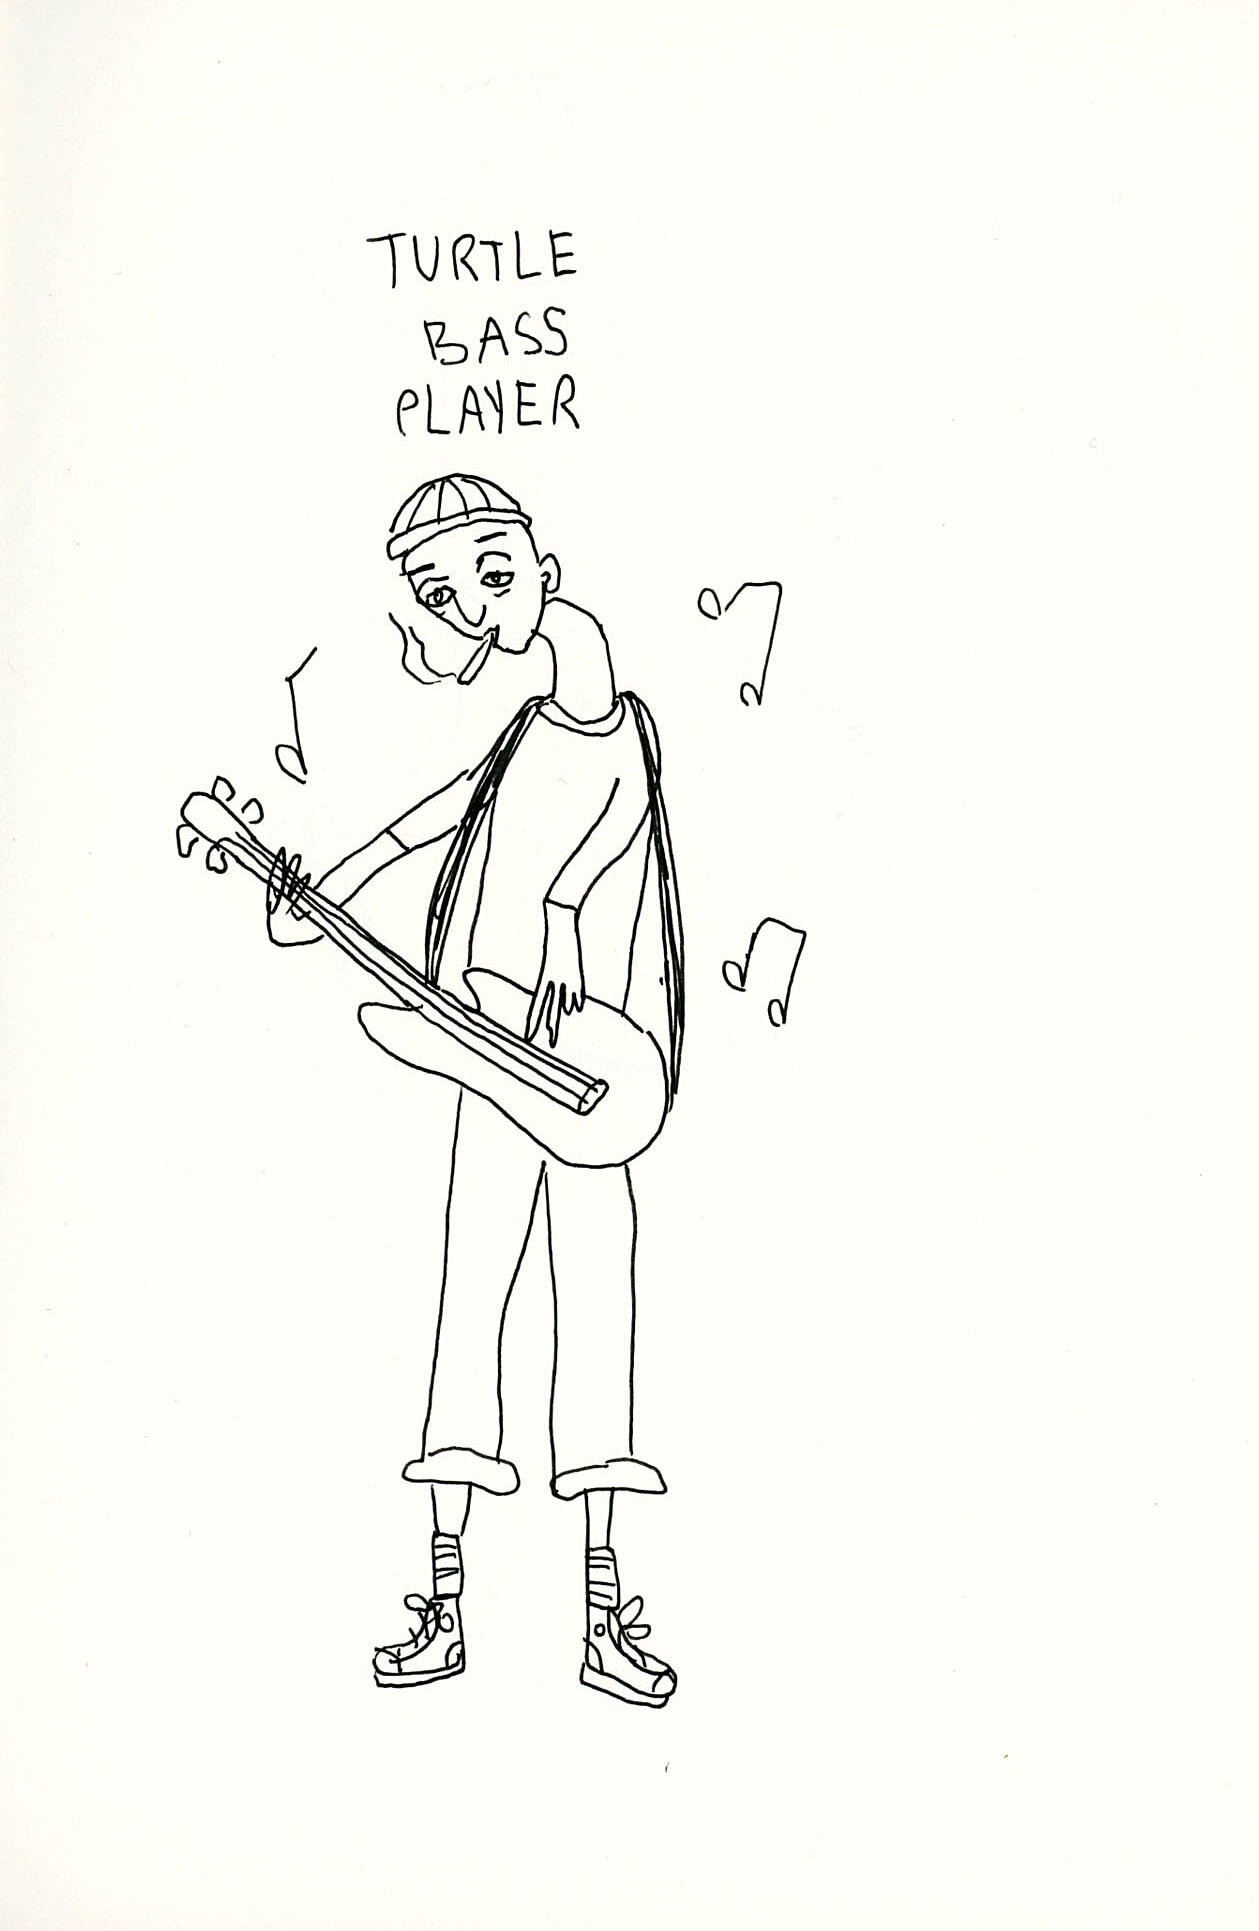 TURTLE
BASS
PLAYER